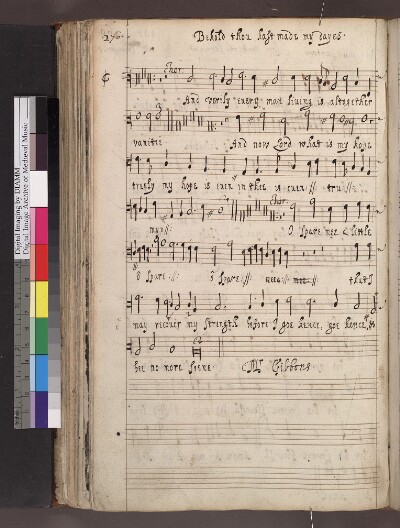 Behold thou hast made my dayes.
Chor.
And verily every man living is altogether
vanitie And now Lord what is my hope
truly my hope is even in thee is even
Chor.
O spare mee a little
O spare O spare that I
may recover my strength before I goe hence, goe hence, &
bee no more seene Mr Gibbons
Digital Imaging by DIAMM
Digital Image Archive of Medieval Music